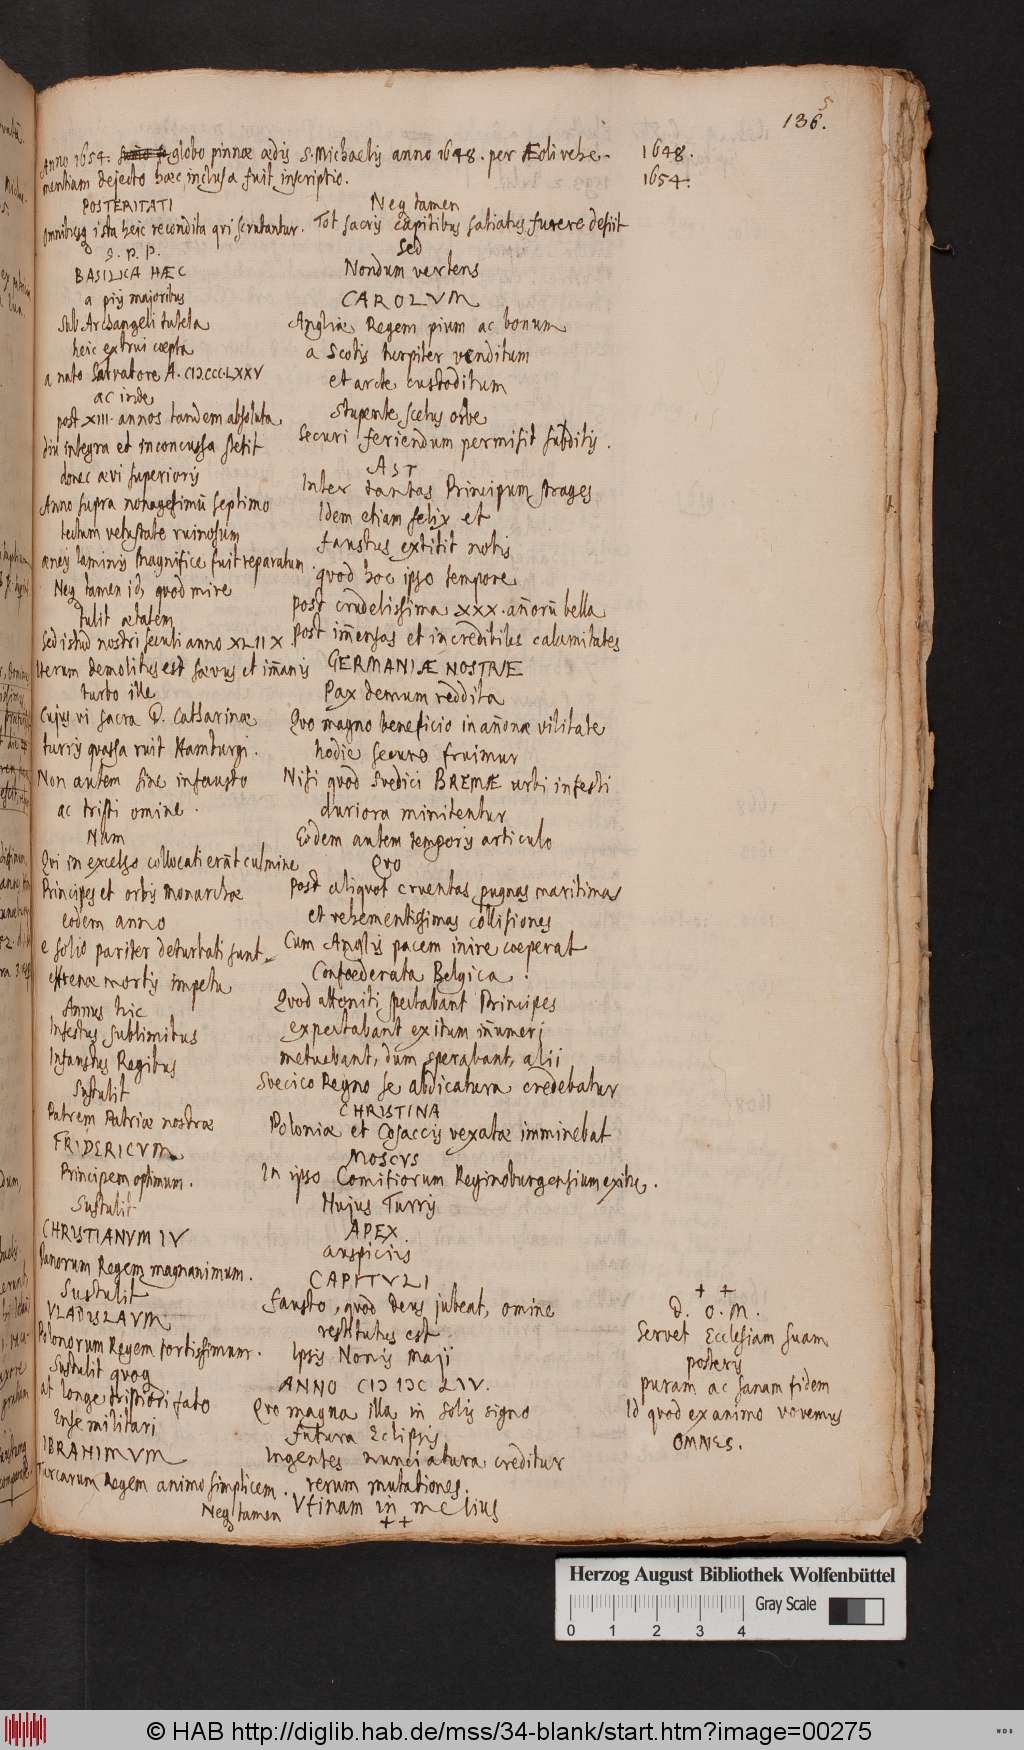 136.
5
Anno 1654. globo pinnæ ædis S. Michaelis anno 1648. per Æoli vehe-
mentiam dejecto hæc inclusa fuit inscriptio.
1648.
1654.
POSTERITATI
Omnibusq ista heic recondita qvi scrutantur.
S. P. P.
BASILICA HÆC
a pijs majoribus
sub Archangeli tutela
heic extrui cœpta
a nato Salvatore A. CIƆCCCCLXXV
ac inde
post XIII. annos tandem absoluta
diu integra et inconcussa stetit
donec ævi superioris
Anno supra nonagesimū septimo
tectum vetustate ruinosum
æneis laminis magnifice fuit reparatum
Neq tamen id, quod mire
tulit ætatem
Sed istud nostri seculi anno XLIIX.
Iterum demolitus est sævus et im̄anis
turbo ille
Cujus vi sacra D. Catharinæ
turris quassa ruit Hamburgi.
Non autem sine infausto
ac tristi omine.
Nam
Qvi in excelso collocati erāt culmine
Principes et orbis Monarchæ
eodem anno
e solio pariter deturbati sunt
effrenæ mortis impetu
Annus hic
Infestus sublimibus
Infaustus Regibus
Sustulit
Patrem Patriæ nostræ
FRIDERICVM
Principem optimum.
Sustulit
CHRISTIANVM IV
Danorum Regem magnanimum.
Sustulit
VLADISLAVM
Polonorum Regem fortissimum.
Sustulit quoq
at longe tristiori fato
Ense militari
IBRAHIMVM
Turcarum Regem animo simplicem.
Neq tamen
Neq tamen
Tot sacris capitibus satiatus furere desiit
Sed
Nondum vertens
CAROLVM
Angliæ Regem pium ac bonum
a Scotis turpiter venditum
et arcte custoditum
stupente scelus orbe
Securi feriendum permisit subditis.
AST
Inter tantas Principum strages
Idem etiam felix et
faustus extitit nobis
quod hoc ipso tempore
post crudelissima XXX. an̄orū bella
post im̄ensas et incredibiles calamitates
GERMANIÆ NOSTRÆ
Pax demum reddita
Qvo magno beneficio in an̄onæ vilitate
hodie securo fruimur
Nisi quod Svedici BREMÆ urbi infesti
duriora minitentur
Eodem autem temporis articulo
Qvo
Post aliquot cruentas pugnas maritimas
et vehementissimas collisiones
Cum Anglis pacem inire cœperat
Confœderata Belgica.
Quod attoniti spectabant Principes
expectabant exitum in̄umeri
metuebant, dum sperabant, alii
Svecico Regno se abdicatura credebatur
CHRISTINA
Poloniæ et Cosaccis vexatæ imminebat
MOSCVS
In ipso Comitiorum Reginoburgensium exitu.
Hujus Turris
APEX
auspiciis
CAPITVLI
fausto, quod Deus jubeat, omine
restitutus est
Ipsis Nonis Maji
ANNO CIƆ IƆC LIV.
Qvo magna illa in solis signo
futura Eclipsis
Ingentes nunciatura creditur
rerum mutationes.
Vtinam in melius
+ +
+ +
D. O. M.
Servet Ecclesiam suam
posteris
puram ac sanam fidem
Id quod ex animo vovemus
OMNES.
Herzog August Bibliothek Wolfenbüttel
Gray Scale
0 1 2 3 4
© HAB http://diglib.hab.de/mss/34-blank/start.htm?image=00275